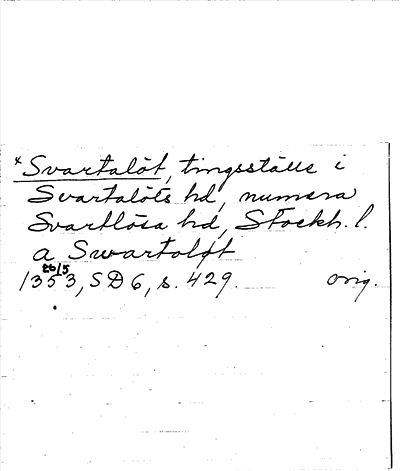 * Svartalöt, tingsställe i
Svartalöts hd, numera
Svartlösa hd, Stockh. l.
a Swartoløt
26/5
1353, SD 6, s. 429. orig.